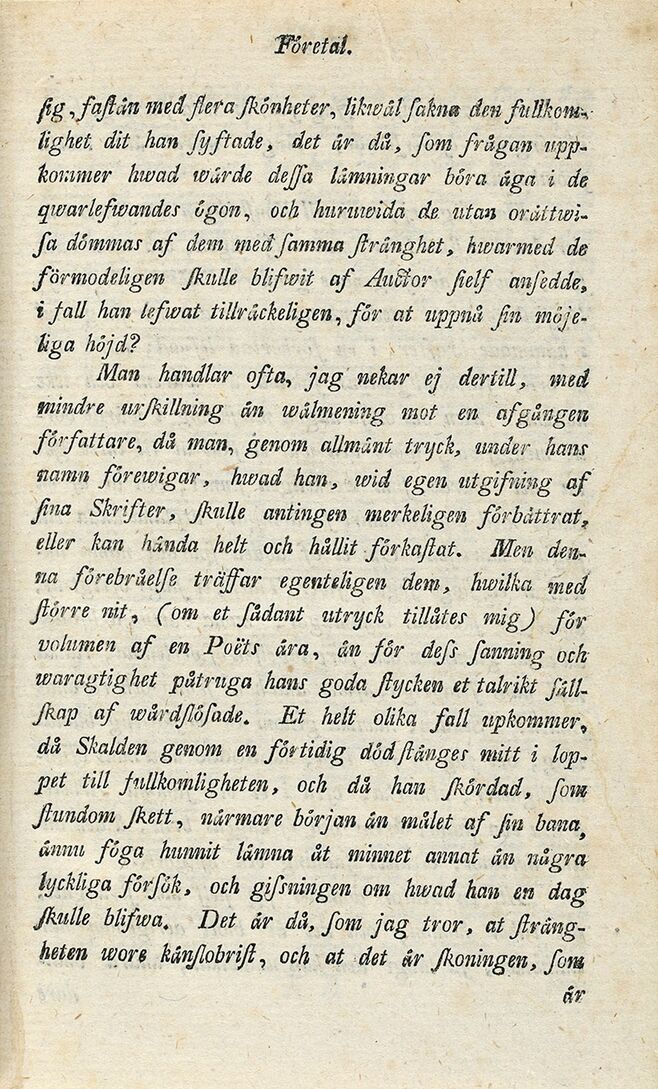 Företal.
sig, fastän med flera skönheter, likwäl sakna den fullkom-
lighet dit han syftade, det är då, som frågan upp-
kommer hwad wärde dessa lämningar böra äga i de
qwarlefwandes ögon, och huruwida de utan orättwi-
sa dömmas af dem med samma stränghet, hwarmed de
förmodeligen skulle blifwit af Auctor sielf ansedde,
i fall han lefwat tillräckeligen, för at uppnå sin möje-
liga höjd?
Man handlar ofta, jag nekar ej dertill, med
mindre urskillning än wälmening mot en afgången
författare, då man, genom allmänt tryck, under hans
namn förewigar, hwad han, wid egen utgifning af
sina Skrifter, skulle antingen merkeligen förbättrat,
eller kan hända helt och hållit förkastat. Men den-
na förebråelse träffar egenteligen dem, hwilka med
större nit, (om et sådant utryck tillåtes mig) för
volumen af en Poëts ära, än för dess sanning och
waragtighet påtruga hans goda stycken et talrikt säll-
skap af wårdslösade. Et helt olika fall upkommer,
då Skalden genom en förtidig död stänges mitt i lop-
pet till fullkomligheten, och då han skördad, som
stundom skett, närmare början än målet af sin bana,
ännu föga hunnit lämna åt minnet annat än några
lyckliga försök, och gissningen om hwad han en dag
skulle blifwa. Det är då, som jag tror, at sträng-
heten wore känslobrist, och at det är skoningen, som
är